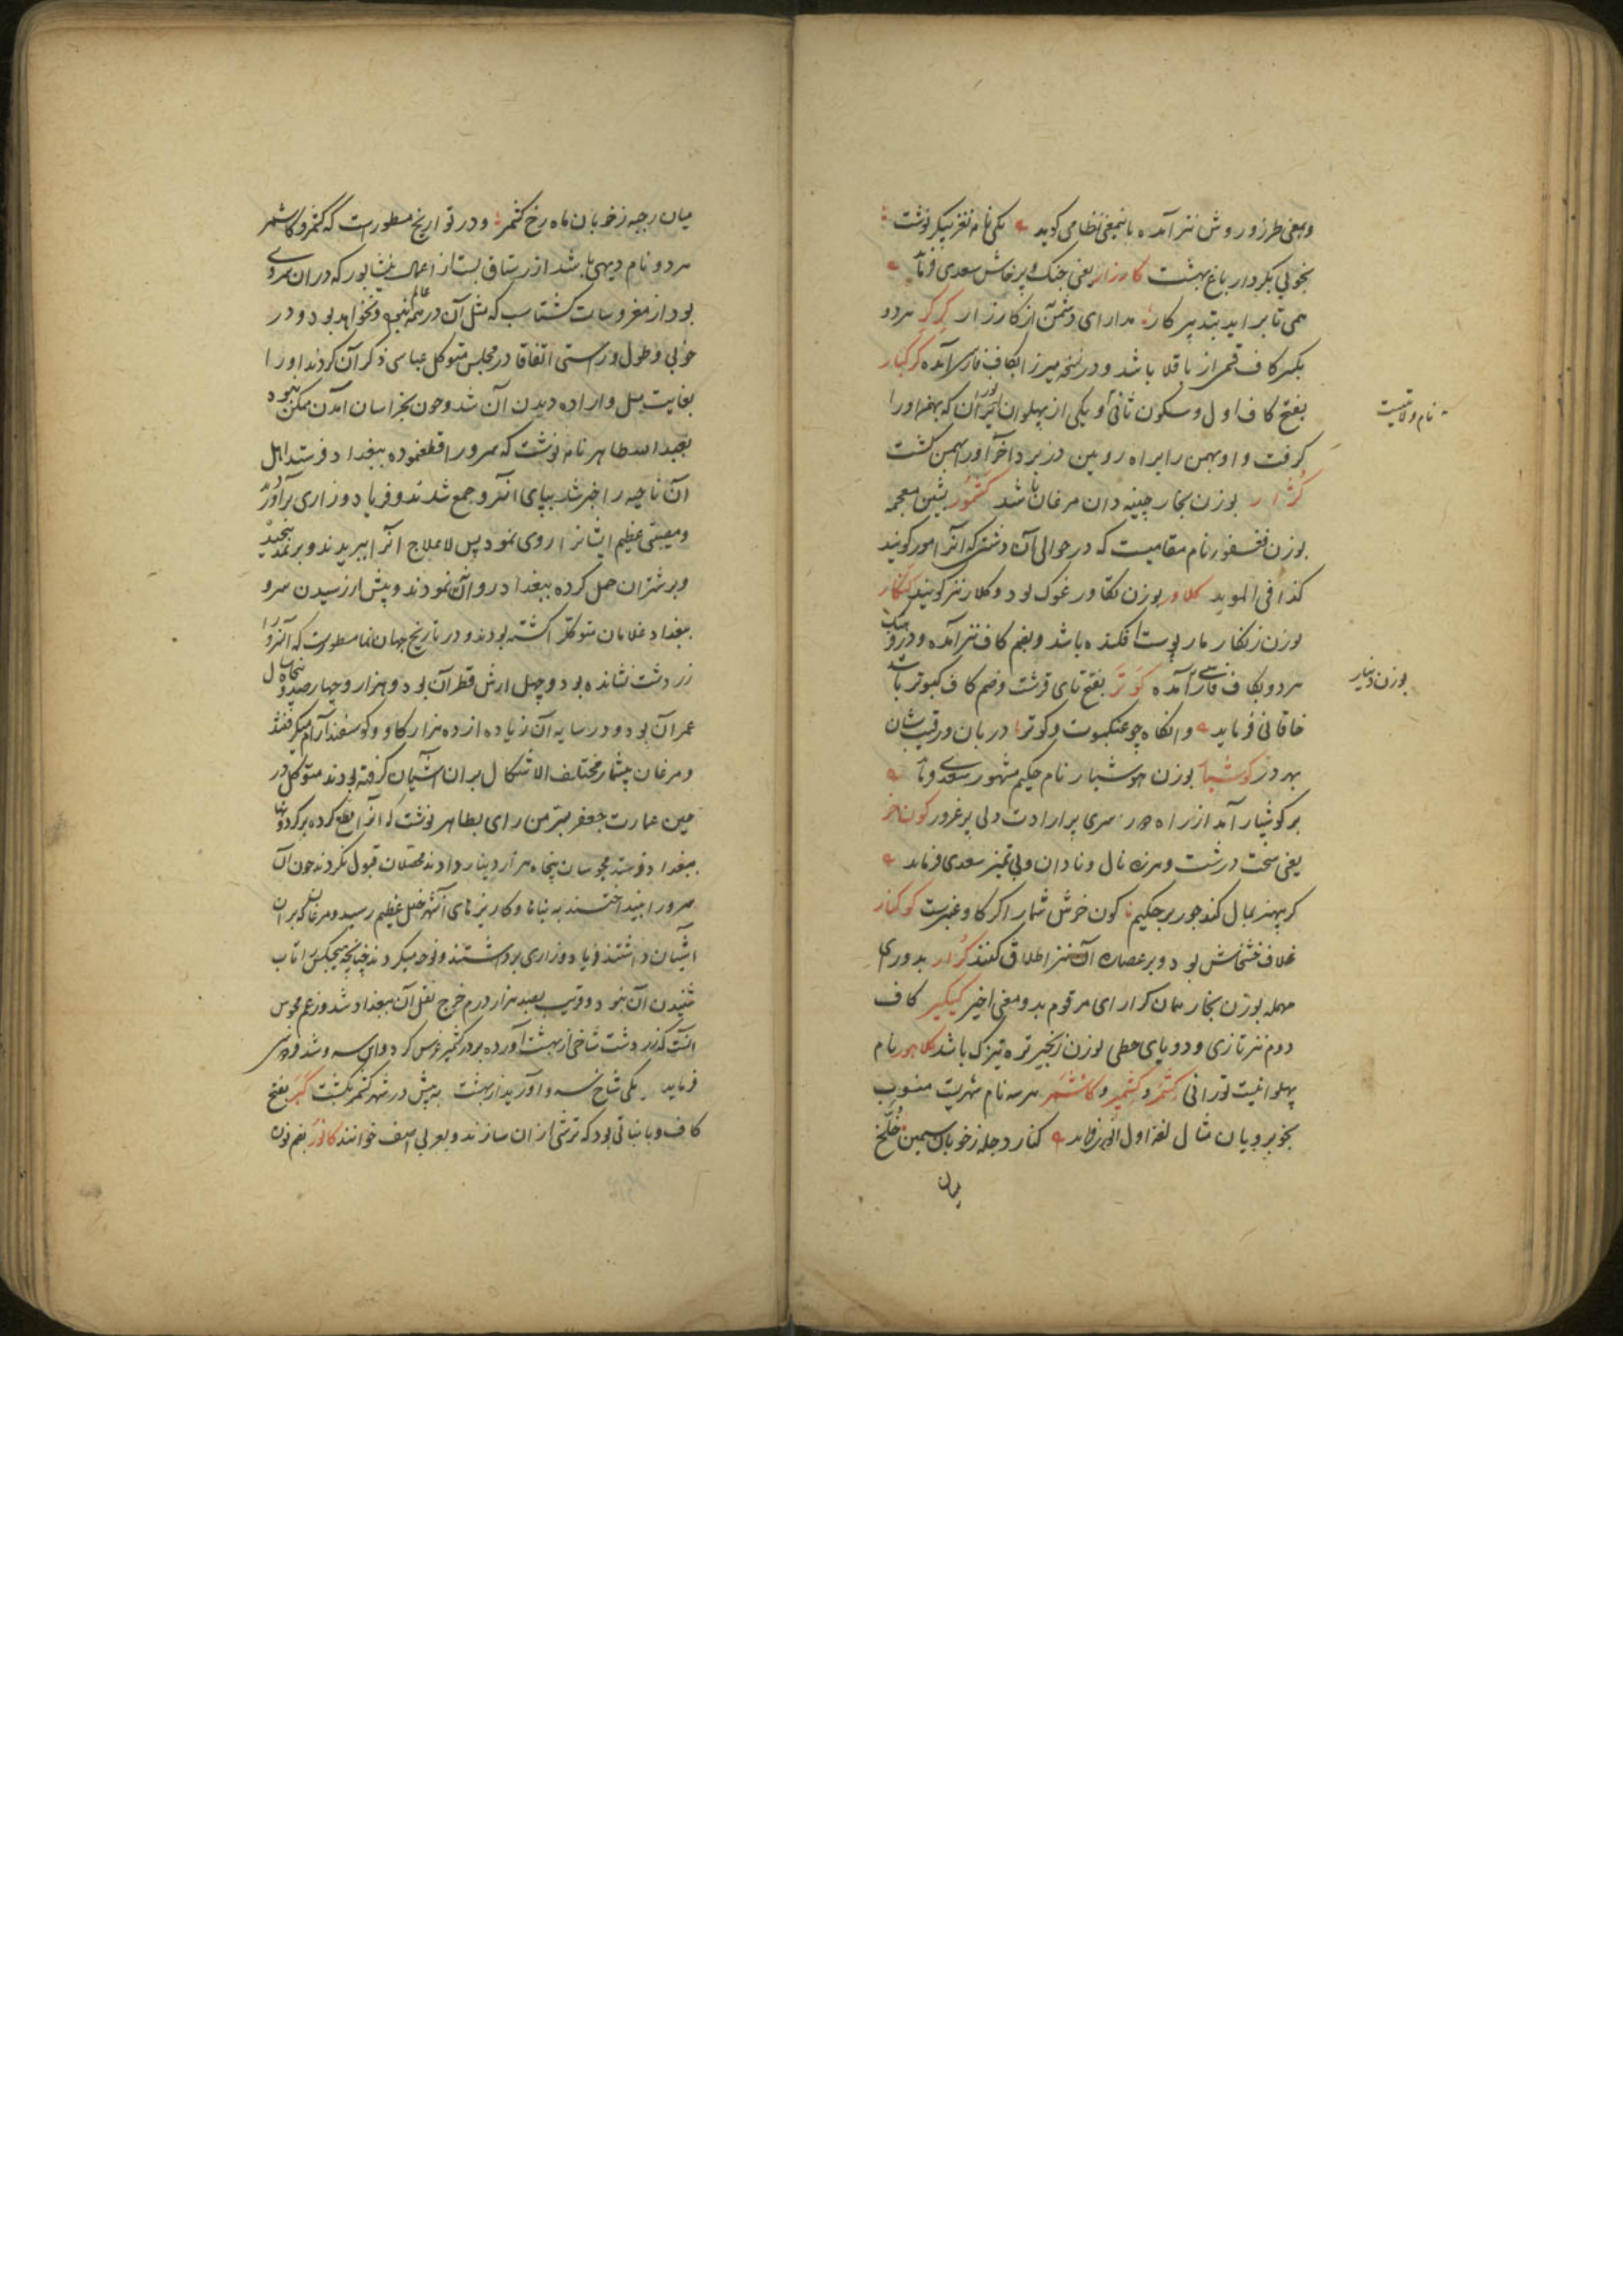 وبمعنی طرز و روش نیز آمده باینمعنی نظامی کوید یکی نام نغز نیکر نوشت
بخوبی بکردار باغ بهشت کارزار یعنی جنک و پرخاش سعدی فرماید
همی تا براید بتدبیر کار مدارای دشمن از کارزار کرکر هر دو
بکسر کاف قسمی از باقلا باشد و در نسخه میرزا بکاف فارسی آمده کرکبار
بفتح کاف اول و سکون ثانی و یکی از پهلوانان ایران که بهمن اورا
نام ولایتیست
کرفت و او بهمن را براه رویین دز برد آخر اورا بهمن کشت
کژار بوزن بخار چینه دان مرغان باشد کشمور بشین معجمه
بوزن فغفور نام مقامیست که در حوالی آن دشتی که آنرا مور کویند
کذا فی الموید کلاور بوزن تکاور غوک بود و کلار نیز کویند کنکار
بوزن زنکار مار پوست افکنده باشد وبضم کاف نیز آمده و در
هر دو بکاف فارسی آمده کوتر بفتح تای قرشت وضم کاف کبوتر باشد
بوزن دینار
خاقانی فرماید وانکاه چو عنکبوت و کوتر دربان و رقیب شان
بهر در کوشیار بوزن هوشیار نام حکیم مشهور سعدی فرماید
بر کوشیار آمد از راه دور سری پر ارادت ولی پر غرور کون خر
یعنی سخت درشت و هرزه نال و نادان و بی تمیز سعدی فرماید
کر بهنر بمال کند جور بر حکیم کون خرش شمار اکر کاو عنبرست کوکنار
غلاف خشخاش بود و بر عصاره آن نیز اطلاق کنند کرار بدو رای
مهمله بوزن بخار همان کرار ای مرقوم بدو معنی اخیر کیکیر کاف
دوم نیز تازی و دو یای حطی بوزن زنجیر تره تیزک باشد کلاهور نام
پهلوانیست تورانی کشمر و کشمیر و کاشمر هر سه نام شهریست منسوب
بخوبرویان مثال لغز اول انوری فرماید کنار دجله ز خوبان سیمین خلخ
میان
میان رحبه ز خوبان ماه رخ کشمر و در تواریخ مسطور است که کشمر و کاشمر
هر دو نام دیهی باشد از رستاق بست از اعمال نیشابور که دران سروی
بود از مغروسات کشتاسب که مثل آن در عالم نبوده ونخواهد بود و در
خوبی و طول و راستی اتفاقا در مجلس متوکل عباسی ذکر آن کردند اورا
بغایت میل و اراده دیدن آن شد و چون بخراسان آمدن ممکن نبود
بعبدالله طاهر نامه نوشت که سرو را قطع نموده ببغداد فرستد اهل
آن ناحیه را خبر شد بپای آنسرو جمع شدند و فریاد و زاری برآوردند
و مصیبتی عظیم ایشانرا روی نمود پس لاعلاج آنرا ببریدند و بر نمد پیچید
و بر شتران حمل کرده ببغداد روان نمودند و پیش از رسیدن سرو
ببغداد غلامان متوکل را کشته بودند و در تاریخ جهان نما مسطورست که آنسرو را
زردشت نشانده بود و چهل ارش قطر آن بود و هزار و چهار صد و پنجاه سال
عمر آن بود و در سایه آن زیاده از ده هزار کاو و کوسفند آرام میکرفتند
و مرغان بیشمار مختلف الاشکال بران آشیان کرفته بودند متوکل در
حین عمارت جعفر سر من رای بطاهر نوشت که آنرا قطع کرده بر کردونها
ببغداد فرستد مجوسان پنجاه هزار دینار دادند محصلان قبول نکردند چون آن
سرو را بینداختند به بناها و کاریزهای آنشهر خلل عظیم رسید و مرغان که بران
آشیان داشتند فریاد و زاری برداشتند و نوحه میکردند چنانچه هیچکس را تاب
شنیدن آن نبود و قریب بصد هزار درم خرج نقل آن ببغداد شد و زعم مجوس
آنست که زردشت شاخی از بهشت آورده بر در کشمیر غرس کرد و این سرو شد فردوسی
فرماید یکی شاخ سرو آورید از بهشت به پیش در شهر کشمر بکشت کبر بفتح
کاف و با نباتی بود که ترشی از آن سازند و بعربی اصف خوانند کانور بضم نون